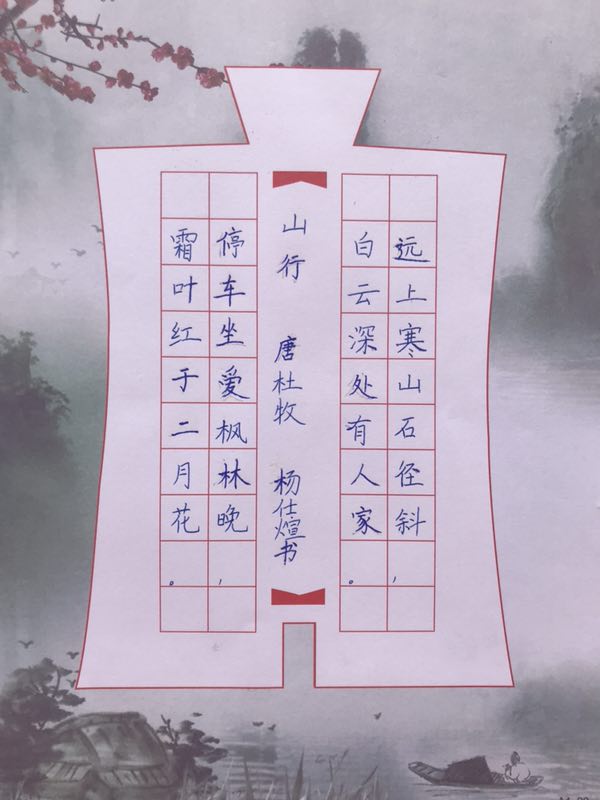 远上寒山石径斜，
白云深处有人家。
山行 唐杜牧 杨仕煊书
停车坐爱枫林晚，
霜叶红于二月花。